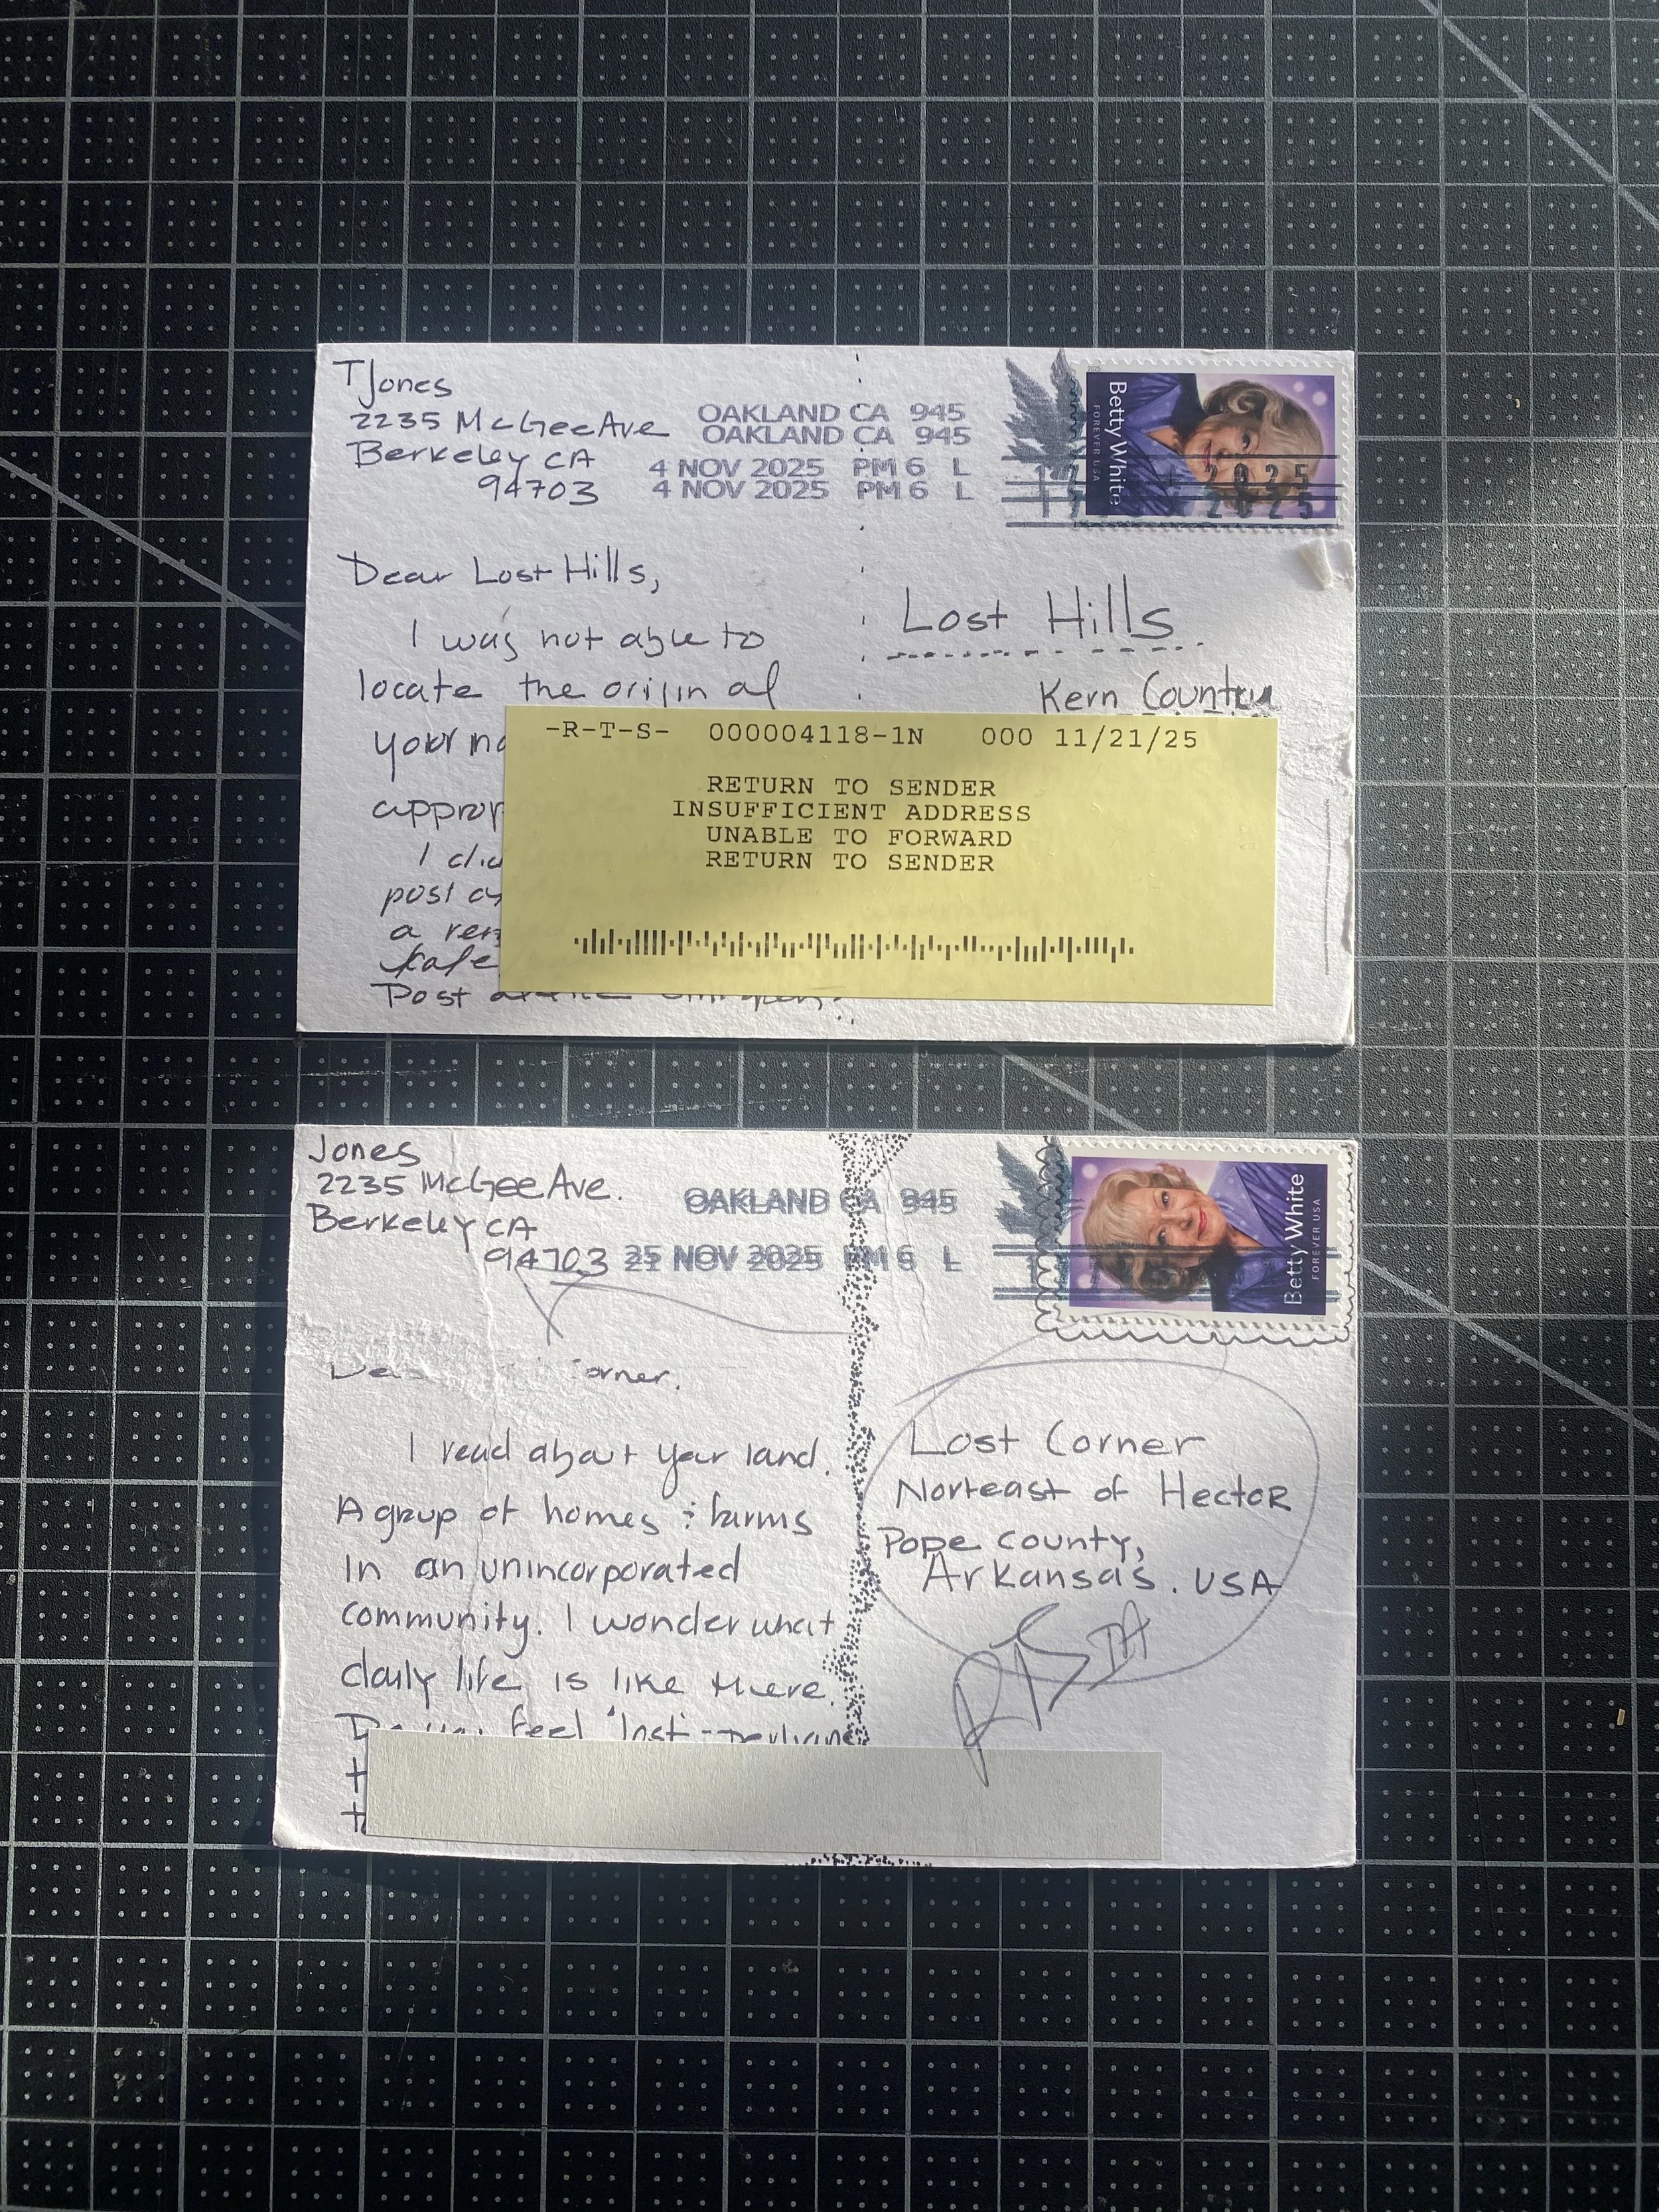 TJones
2235 McGee Ave
Berkeley CA
94703
OAKLAND CA 945
OAKLAND CA 945
4 NOV 2025 PM 6 L
4 NOV 2025 PM 6 L
Betty White
FOREVER USA
2025
Dear Lost Hills,
I was not able to
locate the origin of
your
Lost Hills
Kern Country
-R-T-S- 000004118-1N 000 11/21/25
RETURN TO SENDER
INSUFFICIENT ADDRESS
UNABLE TO FORWARD
RETURN TO SENDER
post
a
Post
Jones
2235 McGee Ave.
Berkeley CA
94703
OAKLAND CA 945
NOV 2025 PM 6 L
Betty White
FOREVER USA
2025
I read about your land.
A group of homes & farms
in an unincorporated
community. I wonder what
daily life is like there.
feel
Lost Corner
Norteast of Hector
Pope county,
Arkansas. USA
RTS